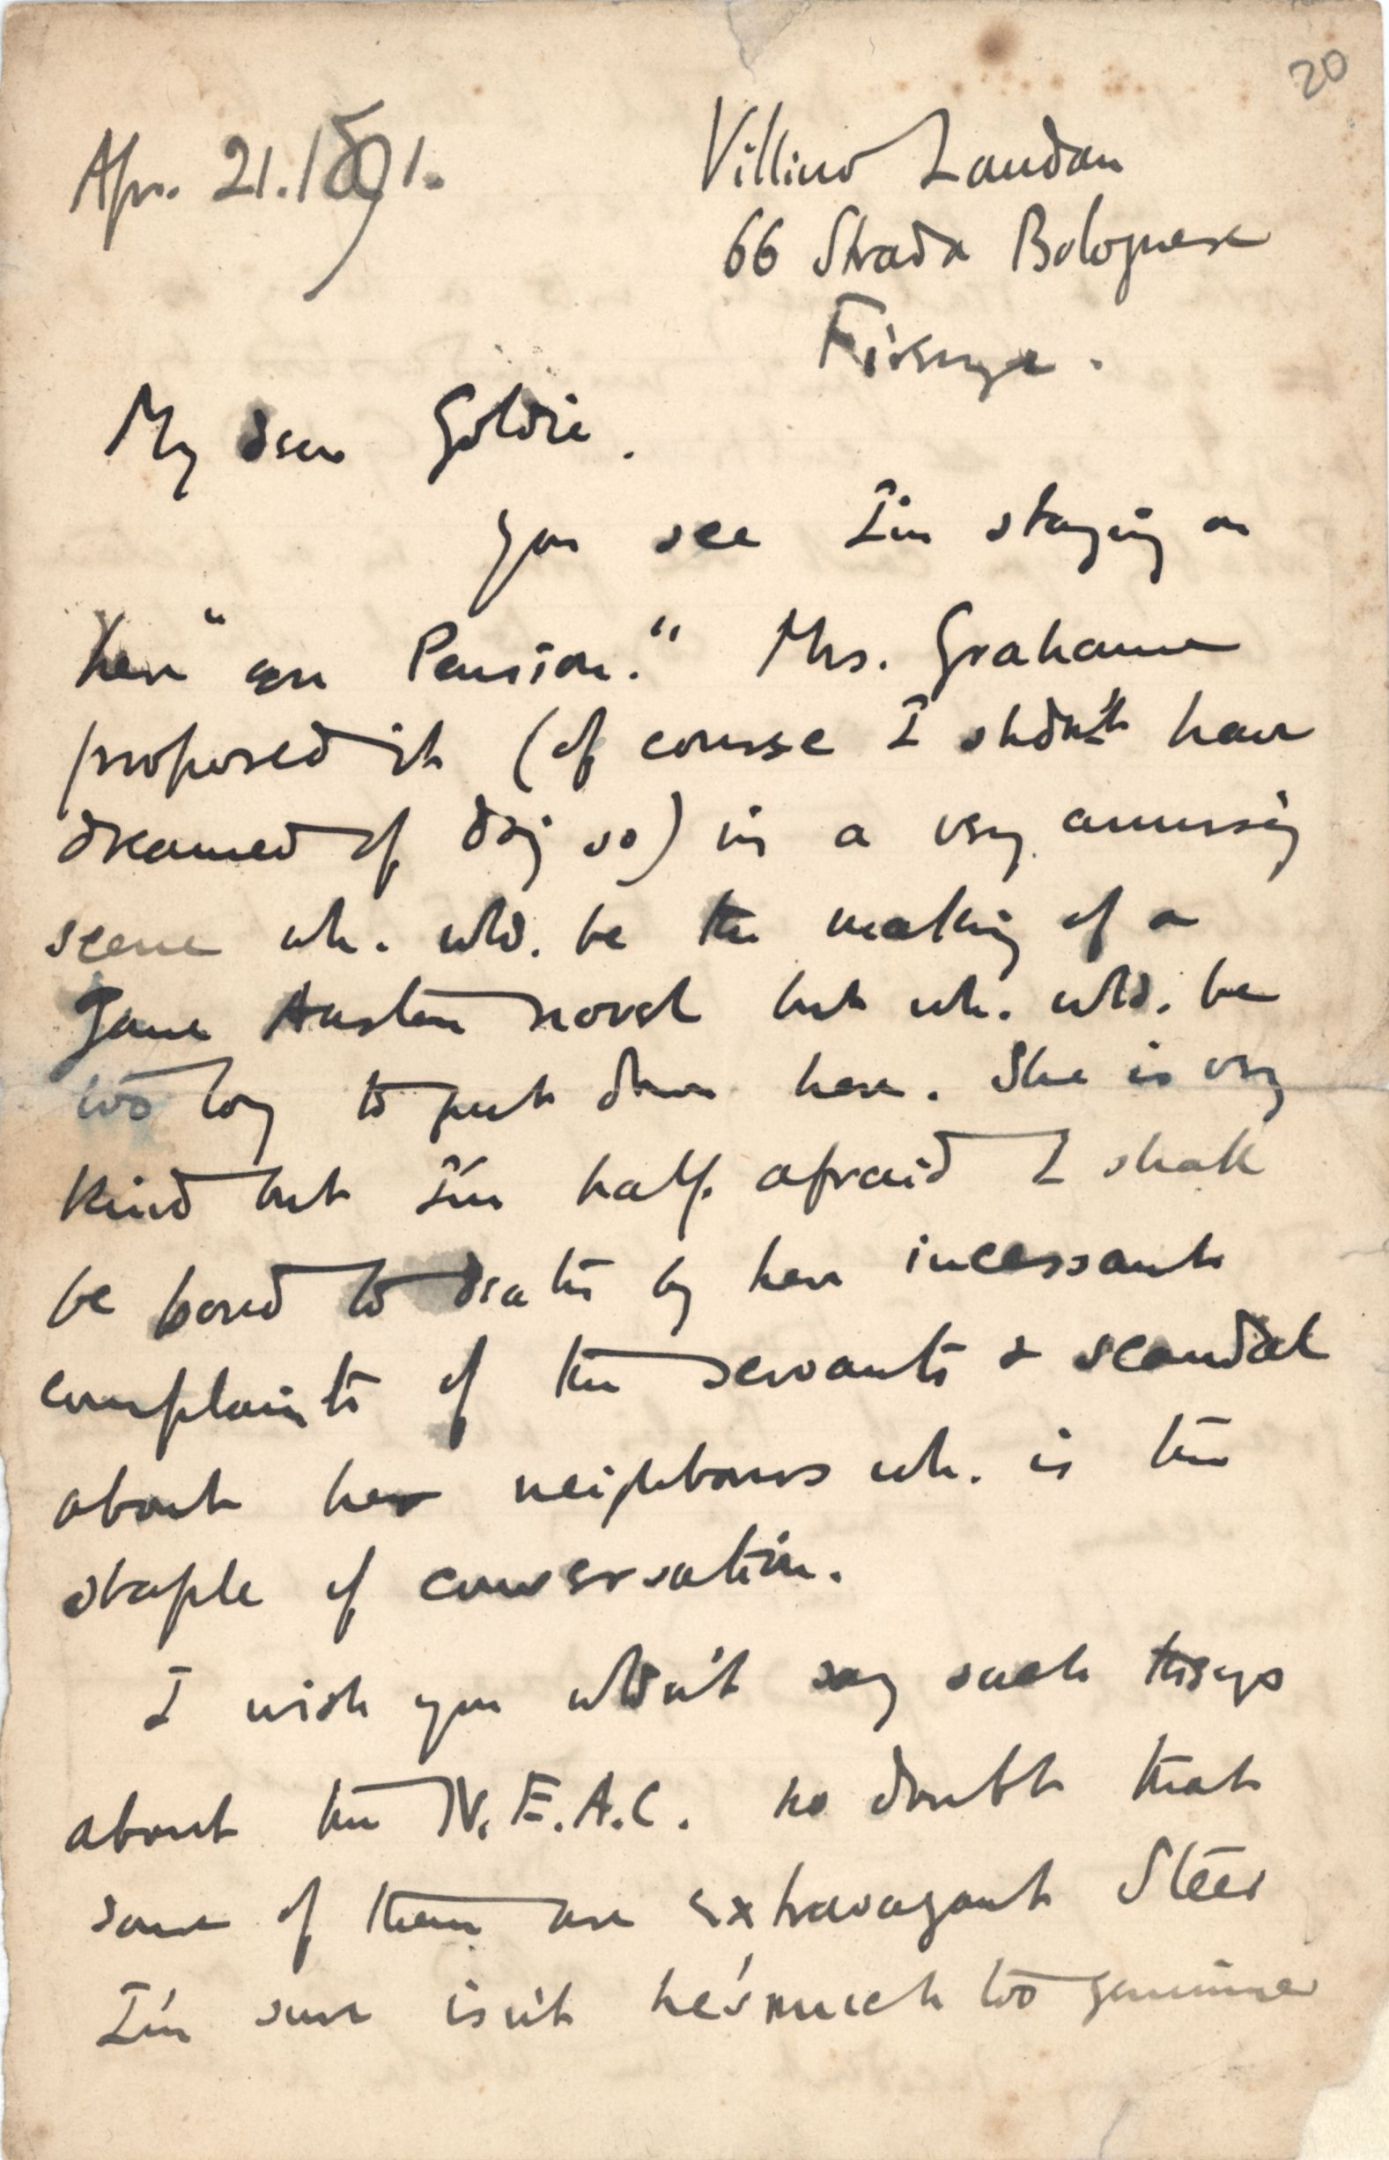 20
Apr. 21. 1891.
Villino Landau
66 Strada Bolognese
Firenze.
My dear Goldie.
You see I'm staying on
here "en Pension." Mrs. Grahame
proposed it (of course I shdn't have
dreamed of doing so) in a very amusing
scene wh. wld. be the making of a
Jane Austen novel but wh. wld. be
too long to put down here. She is very
kind but I'm half afraid I shall
be bored to death by her incessant
complaints of the servants & scandal
about her neighbours wh. is the
staple of conversation.
I wish you wldn't say such things
about the N.E.A.C. no doubt that
some of them are extravagant Steer
I'm sure isn't he's much too genuine